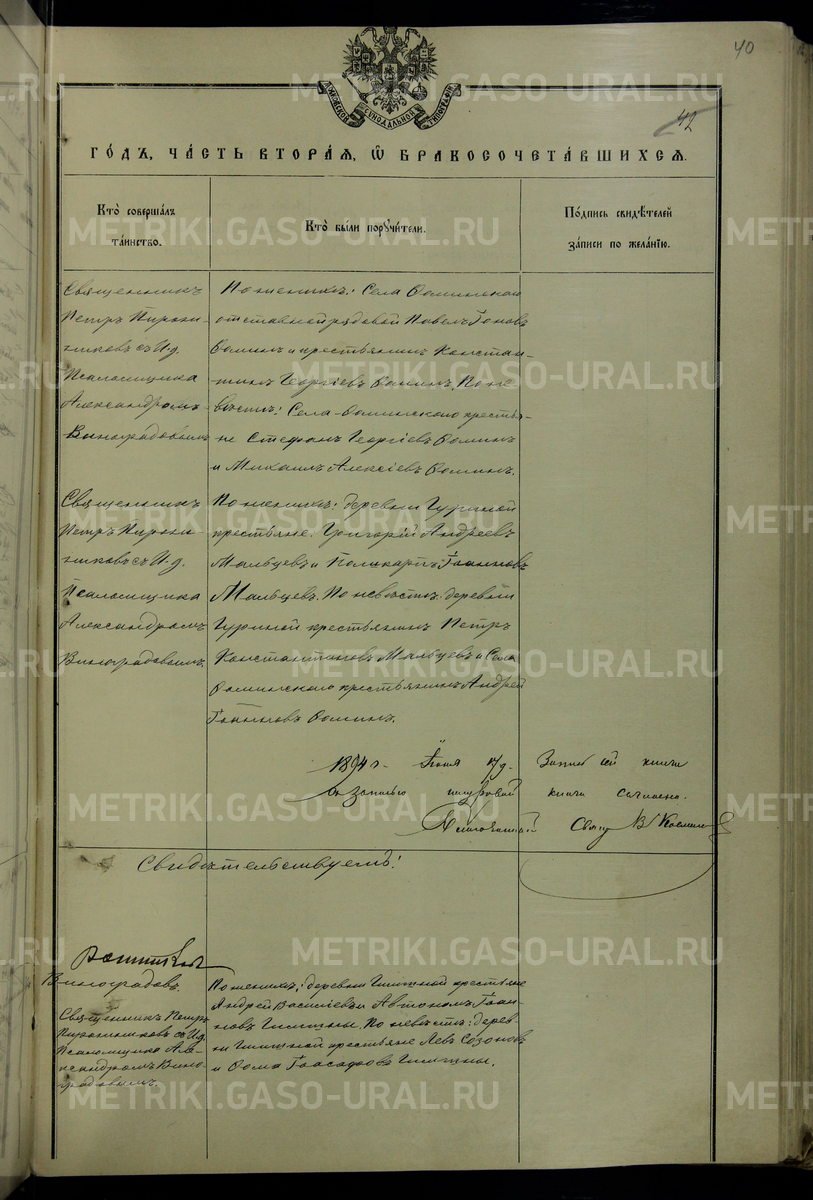 40
42
МОСКОВСКОЙ СѴНОДАЛЬНОЙ ТИПОГРАФІИ
ГОДЪ, ЧАСТЬ ВТОРАЯ, Ѡ БРАКОСОЧЕТАВШИХСЯ.
Кто совершалъ
таинство.
Кто были поручители.
Подпись свидѣтелей
записи по желанію.
Священникъ
Петръ
съ И. д.
Псаломщика
Александромъ
Виноградовымъ
По женихѣ: Села Фоминскаго
отставной рядовой Павелъ
Фоминъ и крестьянинъ Констан-
тинъ Георгіевъ Фоминъ. По не-
вѣстѣ: Села Фоминского крестья-
не Стефанъ Георгіевъ Фоминъ
и Михаилъ Алексіевъ Фоминъ.
Священникъ
Петръ
съ И. д.
Псаломщика
Александромъ
Виноградовымъ.
По женихѣ: деревни
крестьяне Григорій Андреевъ
Мальцевъ и Поликарпъ Іоанновъ
Мальцевъ. По невѣстѣ: деревни
крестьянинъ Петръ
Константиновъ Мальцевъ и Села
Фоминского крестьянинъ Андрей
Іоанновъ Фоминъ.
1894 г. Іюня 17 д. Запись сей книги
съ записью шнуровой книги согласна.
Свящ. В.
Свидѣтельствуемъ:
Виноградовъ.
Священникъ Петръ
съ И.д.
Псаломщика Але-
ксандромъ Вино-
градовымъ.
По женихѣ: деревни крестьяне
Андрей Василіевъ и Автономъ Іоан-
новъ. По невѣстѣ: дерев-
ни крестьяне Левъ Созоновъ
и Фома Іоасафовъ
METRIKI.GASO-URAL.RU